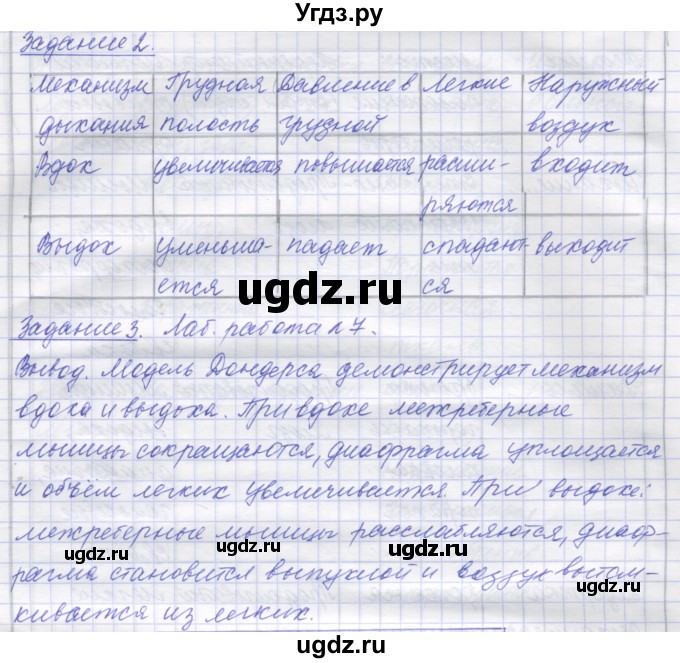 Угдз.ру
Задание 2.
Механизм Грудная Давление в Легкие Наружный
дыхания полость грудной воздух
Вдох увеличивается повышается расши- входит
ряются
Выдох уменьша- падает спадают- выходит
ется ся
ugdz.ru
Задание 3. Лаб. работа №7.
Вывод. Модель Дондерса демонстрирует механизм
вдоха и выдоха. При вдохе межреберные
мышцы сокращаются, диафрагма уплощается
и объём легких увеличивается. При выдохе:
межреберные мышцы расслабляются, диаф-
ugdz.ru ugdz.ru ugdz.ru
рагма становится выпуклой и воздух вытал-
кивается из легких.
ugdz.ru